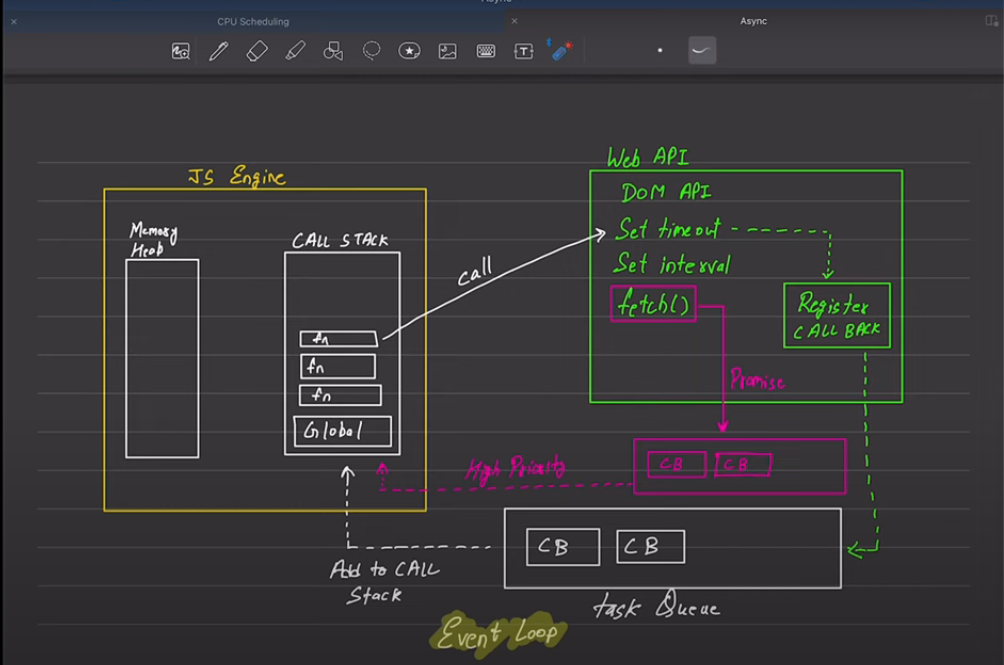 Async
CPU Scheduling
Async
JS Engine
Memory
Heap
CALL STACK
fn
fn
fn
Global
call
Web API
DOM API
Set timeout
Set interval
fetch()
Register
CALL BACK
Promise
CB CB
High Priority
CB CB
Add to CALL
Stack
task Queue
Event Loop